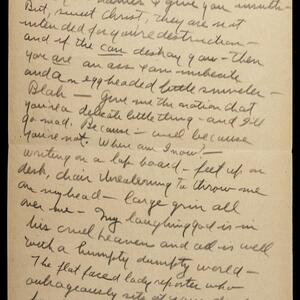 names & give you insults
But, sweet Christ, they are not
intended for you're destruction –
and if the can destroy you – then
you are an ass + an imbecile
and an egg headed little sniveler –
Blah – Give me the notion that
you're a delicate little thing – and I'll
go mad! Because – well because
you're not. Where am I now? –
writing on a lap board – feet up on
desk, chair threatening to throw me
on my head – large grin all
over me – My laughing god is in
his cruel heaven and all is well
with a humpty dumpty world –
The flat faced lady reporter who
outrageously sits at your desk